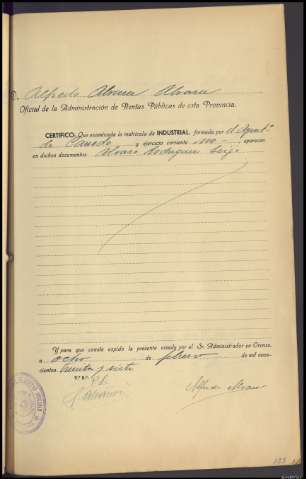 D. Alfredo Alvarez Alvarez
Oficial de la Administración de Rentas Públicas de esta Provincia.
CERTIFICO: Que examinada la matrícula de INDUSTRIAL formada por el Ayunt.º
de Canedo y ejercicio corriente NO aparece
en dichos documentos Alvaro Rodriguez
Y para que conste expido la presente visada por el Sr. Administrador en Orense,
a ocho de febrero de mil nove-
cientos treinta y siete
V.º B.º
Alfredo Alvarez